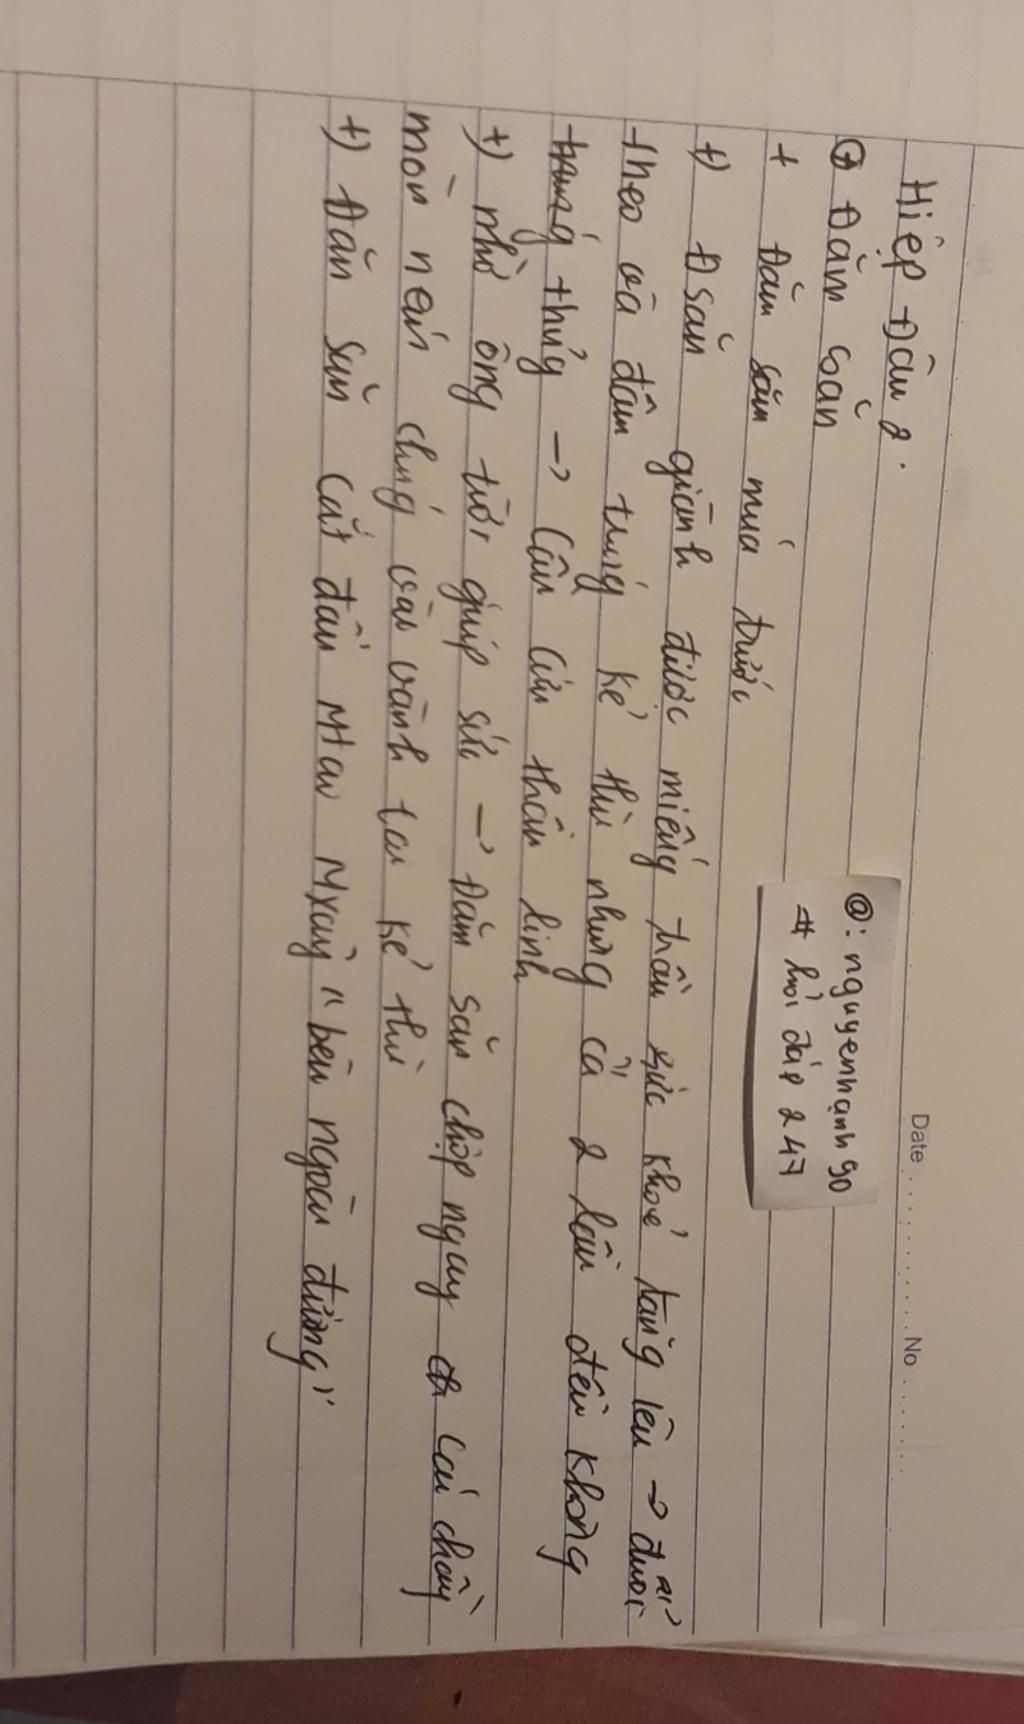 Date ........... No ........
Hiệp Đấu 2.
+ Đăm Săn
@: nguyenhạnh90
# hỏi đáp 247
+ Đăm Săn múa trước
+) ĐSăn giành được miếng trầu sức khoẻ tăng lên → đuổi
theo và đâm trúng kẻ thù nhưng cả 2 lần đều không
thủng → Cầu cứu thần linh
+) nhờ ông trời giúp sức → Đăm Săn chộp ngay cái chày
mòn ném chúng vào vành tai kẻ thù
+) Đăn Săn cắt đầu Mtao Mxây "bêu ngoài đường"